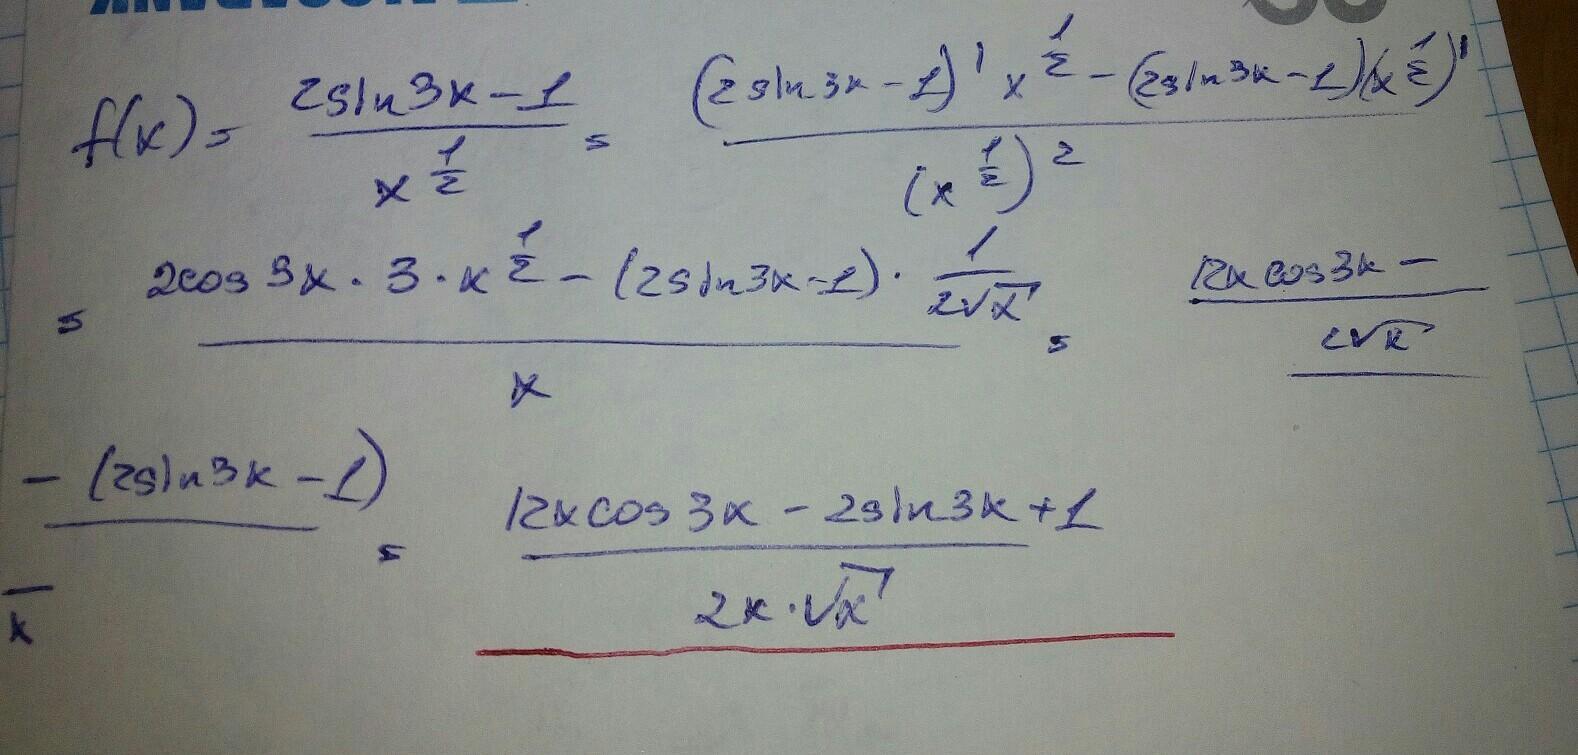 f(x) = (2sin3x-1)/(x^(1/2)) = ((2sin3x-1)' x^(1/2) - (2sin3x-1)(x^(1/2))')/((x^(1/2))^2)
= (2cos3x · 3 · x^(1/2) - (2sin3x-1) · 1/(2√x))/x = 12x cos3x - / 2√x
- (2sin3x-1) / x = (12xcos3x - 2sin3x+1)/(2x·√x)